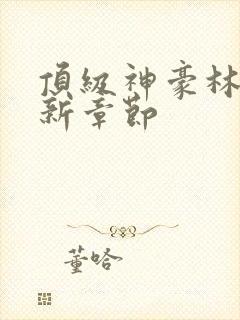 頂級神豪林
新章節
董哈